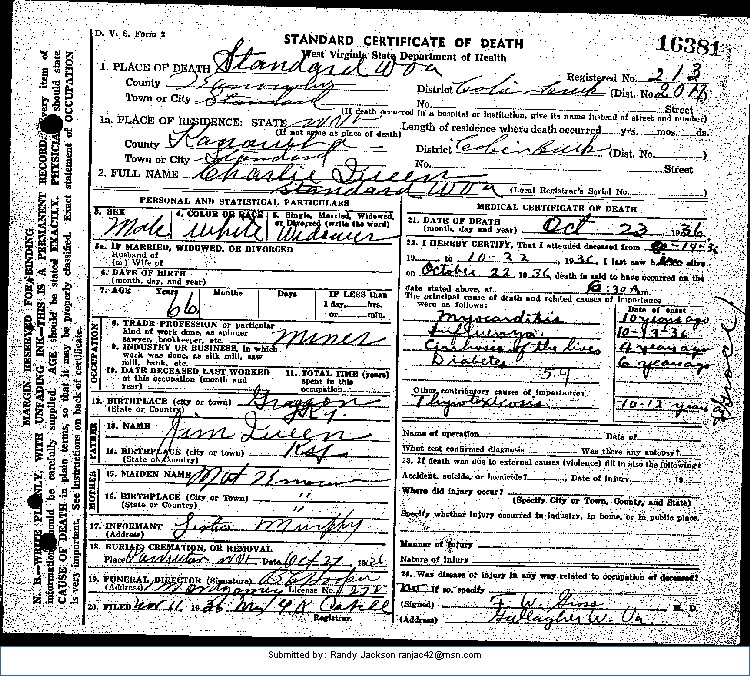 D. V. S. Form 2
STANDARD CERTIFICATE OF DEATH
West Virginia State Department of Health
16381
1. PLACE OF DEATH Standard W Va
Registered No. 213
County
District (Dist. No. 2017)
Town or City Standard No. Street
(If death occurred in a hospital or institution, give its name instead of street and number)
1a. PLACE OF RESIDENCE: STATE W Va Length of residence where death occurred yrs. mos. ds.
(If not same as place of death)
County Kanawha District Cabin (Dist. No. )
Town or City Standard No. Street
2. FULL NAME Charlie Queen
Standard W Va (Local Registrar's Serial No. )
PERSONAL AND STATISTICAL PARTICULARS
3. SEX 4. COLOR OR RACE 5. Single, Married, Widowed, or Divorced (write the word)
Male White Widower
5a. IF MARRIED, WIDOWED, OR DIVORCED
Husband of
(or) Wife of
6. DATE OF BIRTH
(month, day, and year)
7. AGE Years Months Days IF LESS than
66 1 day, hrs.
or min.
OCCUPATION
8. TRADE, PROFESSION or particular
kind of work done, as spinner
sawyer, bookkeeper, etc. Miner
9. INDUSTRY OR BUSINESS, in which
work was done, as silk mill, saw
mill, bank, etc.
10. DATE DECEASED LAST WORKED
at this occupation (month and
year)
11. TOTAL TIME (years)
spent in this
occupation
12. BIRTHPLACE (city or town) Grayson
(State or Country) Ky.
FATHER
13. NAME Jim Queen
14. BIRTHPLACE (city or town) Ky
(State or Country)
MOTHER
15. MAIDEN NAME Not Known
16. BIRTHPLACE (City or Town) "
(State or Country) "
17. INFORMANT Murphy
(Address)
18. BURIAL, CREMATION, OR REMOVAL
Place W Va Date Oct 27, 1936
19. FUNERAL DIRECTOR (Signature)
(Address) Montgomery License No.
20. FILED Nov 11 1936
Registrar.
MEDICAL CERTIFICATE OF DEATH
21. DATE OF DEATH
(month, day, and year) Oct 23 1936
22. I HEREBY CERTIFY, That I attended deceased from 10-14-36
19 to 10-22, 1936, I last saw h alive
on October 22 1936, death is said to have occurred on the
date stated above, at 6:30 A m.
The principal cause of death and related causes of importance
were as follows: Date of onset
Myocarditis 10 years ago
Influenza 10-13-36
Cirrhosis of the liver years ago
Diabetes 6 years ago
59
Other contributory causes of importance:
Thyrotoxicosis 10-12 years
Name of operation Date of
What test confirmed diagnosis Was there any autopsy?
23. If death was due to external causes (violence) fill in also the following:
Accident, suicide, or homicide? Date of injury 19
Where did injury occur?
(Specify City or Town, County, and State)
Specify whether injury occurred in industry, in home, or in public place.
Manner of Injury
Nature of Injury
24. Was disease or injury in any way related to occupation of deceased?
If so, specify
(Signed) M. D.
(Address) Gallagher W. Va
MARGIN RESERVED FOR BINDING
N. B.—WRITE PLAINLY, WITH UNFADING INK—THIS IS A PERMANENT RECORD. Every item of
information should be carefully supplied. AGE should be stated EXACTLY. PHYSICIANS should state
CAUSE OF DEATH in plain terms, so that it may be properly classified. Exact statement of OCCUPATION
is very important. See instructions on back of certificate.
Submitted by: Randy Jackson ranjac42@msn.com